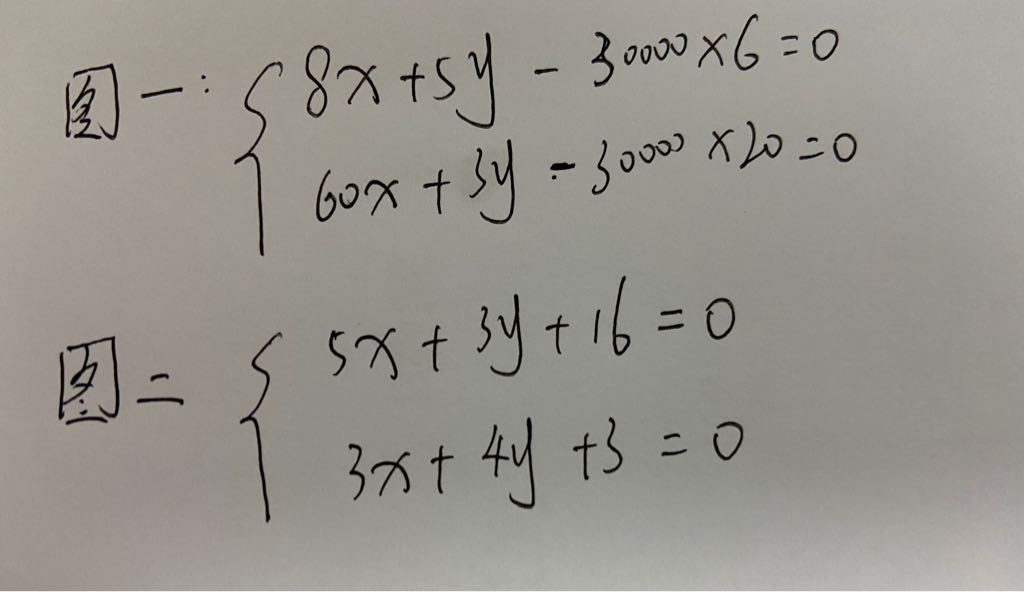 图一: 8x+5y-30000×6=0
60x+3y-30000×20=0
图二 5x+3y+16=0
3x+4y+3=0